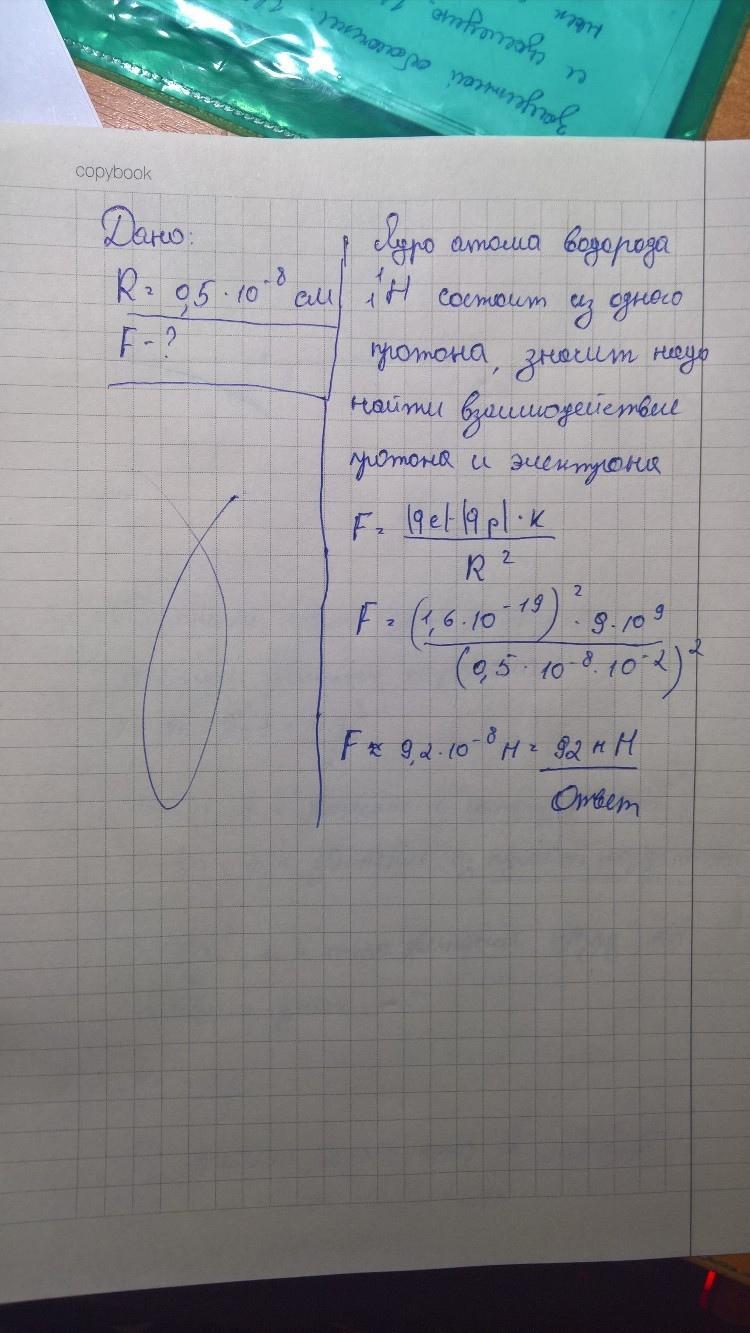 защитной оболочки.
и
copybook
Дано:
R = 0,5 · 10⁻⁸ см
F - ?
Ядро атома водорода
¹₁H состоит из одного
протона, значит надо
найти взаимодействие
протона и электрона
F = |qe|·|qp| · K / R²
F = (1,6 · 10⁻¹⁹)² · 9 · 10⁹ / (0,5 · 10⁻⁸ · 10⁻²)²
F ≈ 9,2 · 10⁻⁸ Н = 92 нН
Ответ